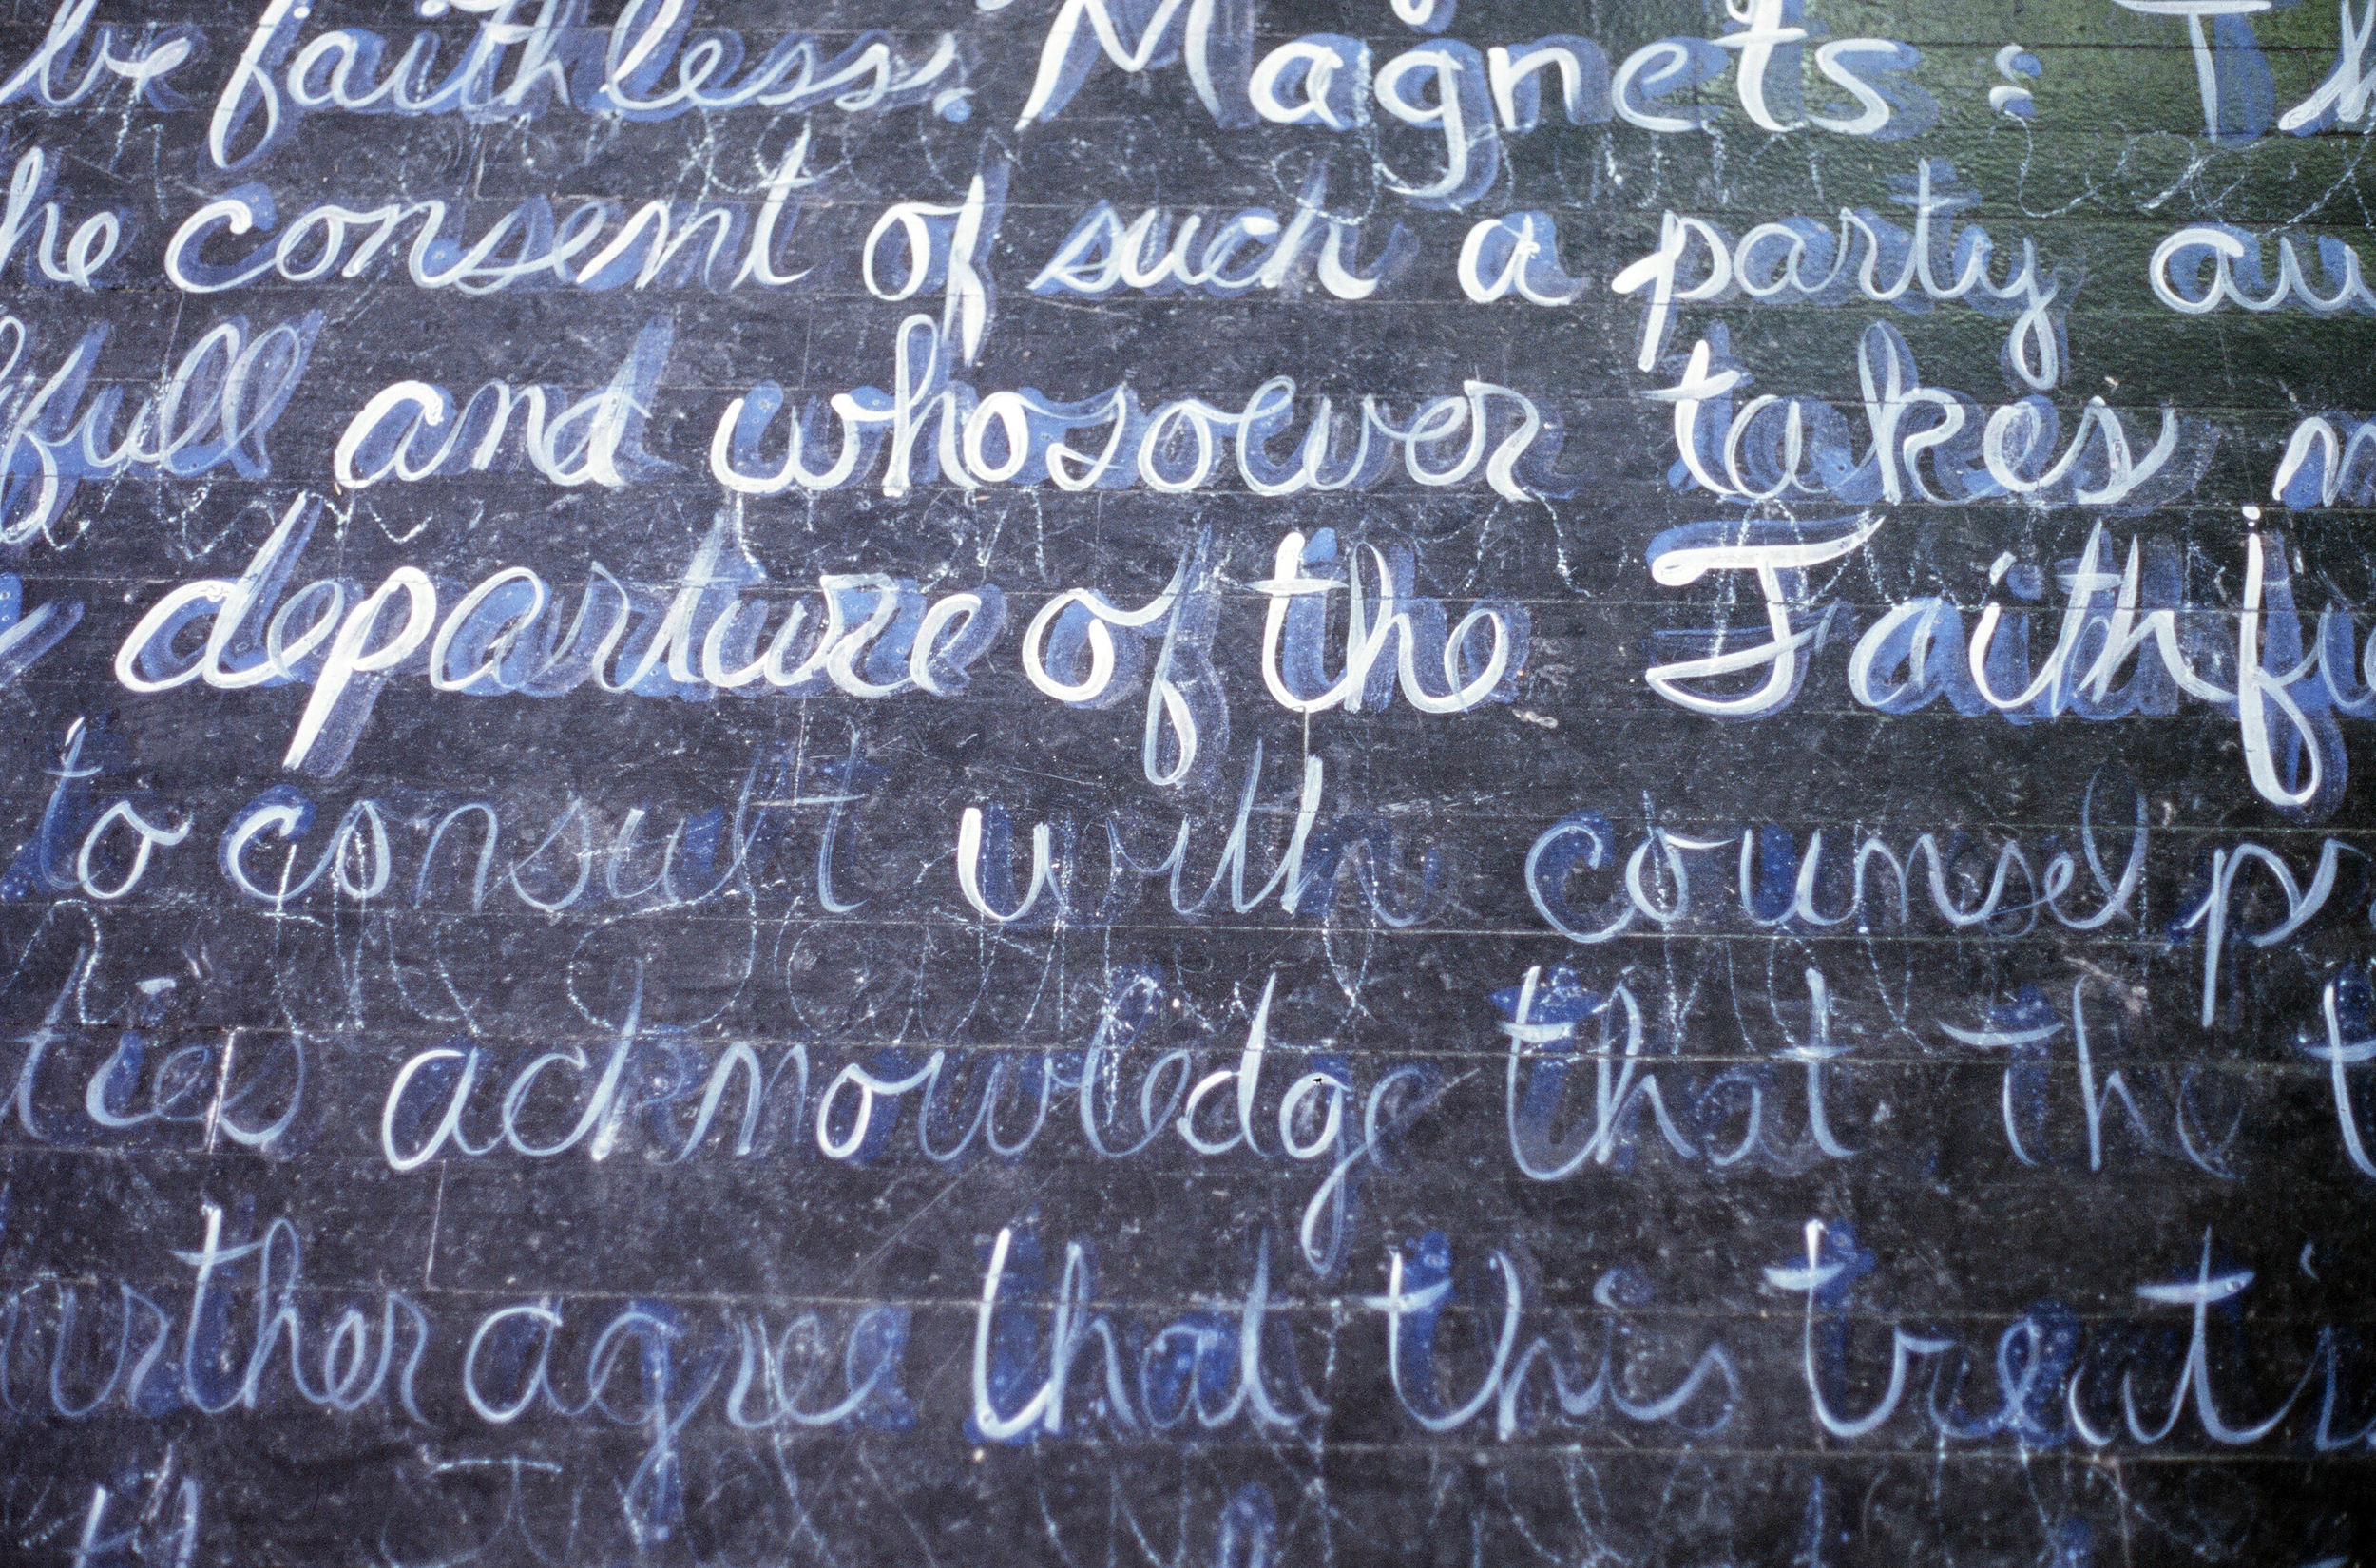 be faithless. Magnets: Th
he consent of such a party au
full and whosoever takes m
departure of the Faithfu
to consult with counsel pr
ties acknowledge that the t
urther agree that this treati
th